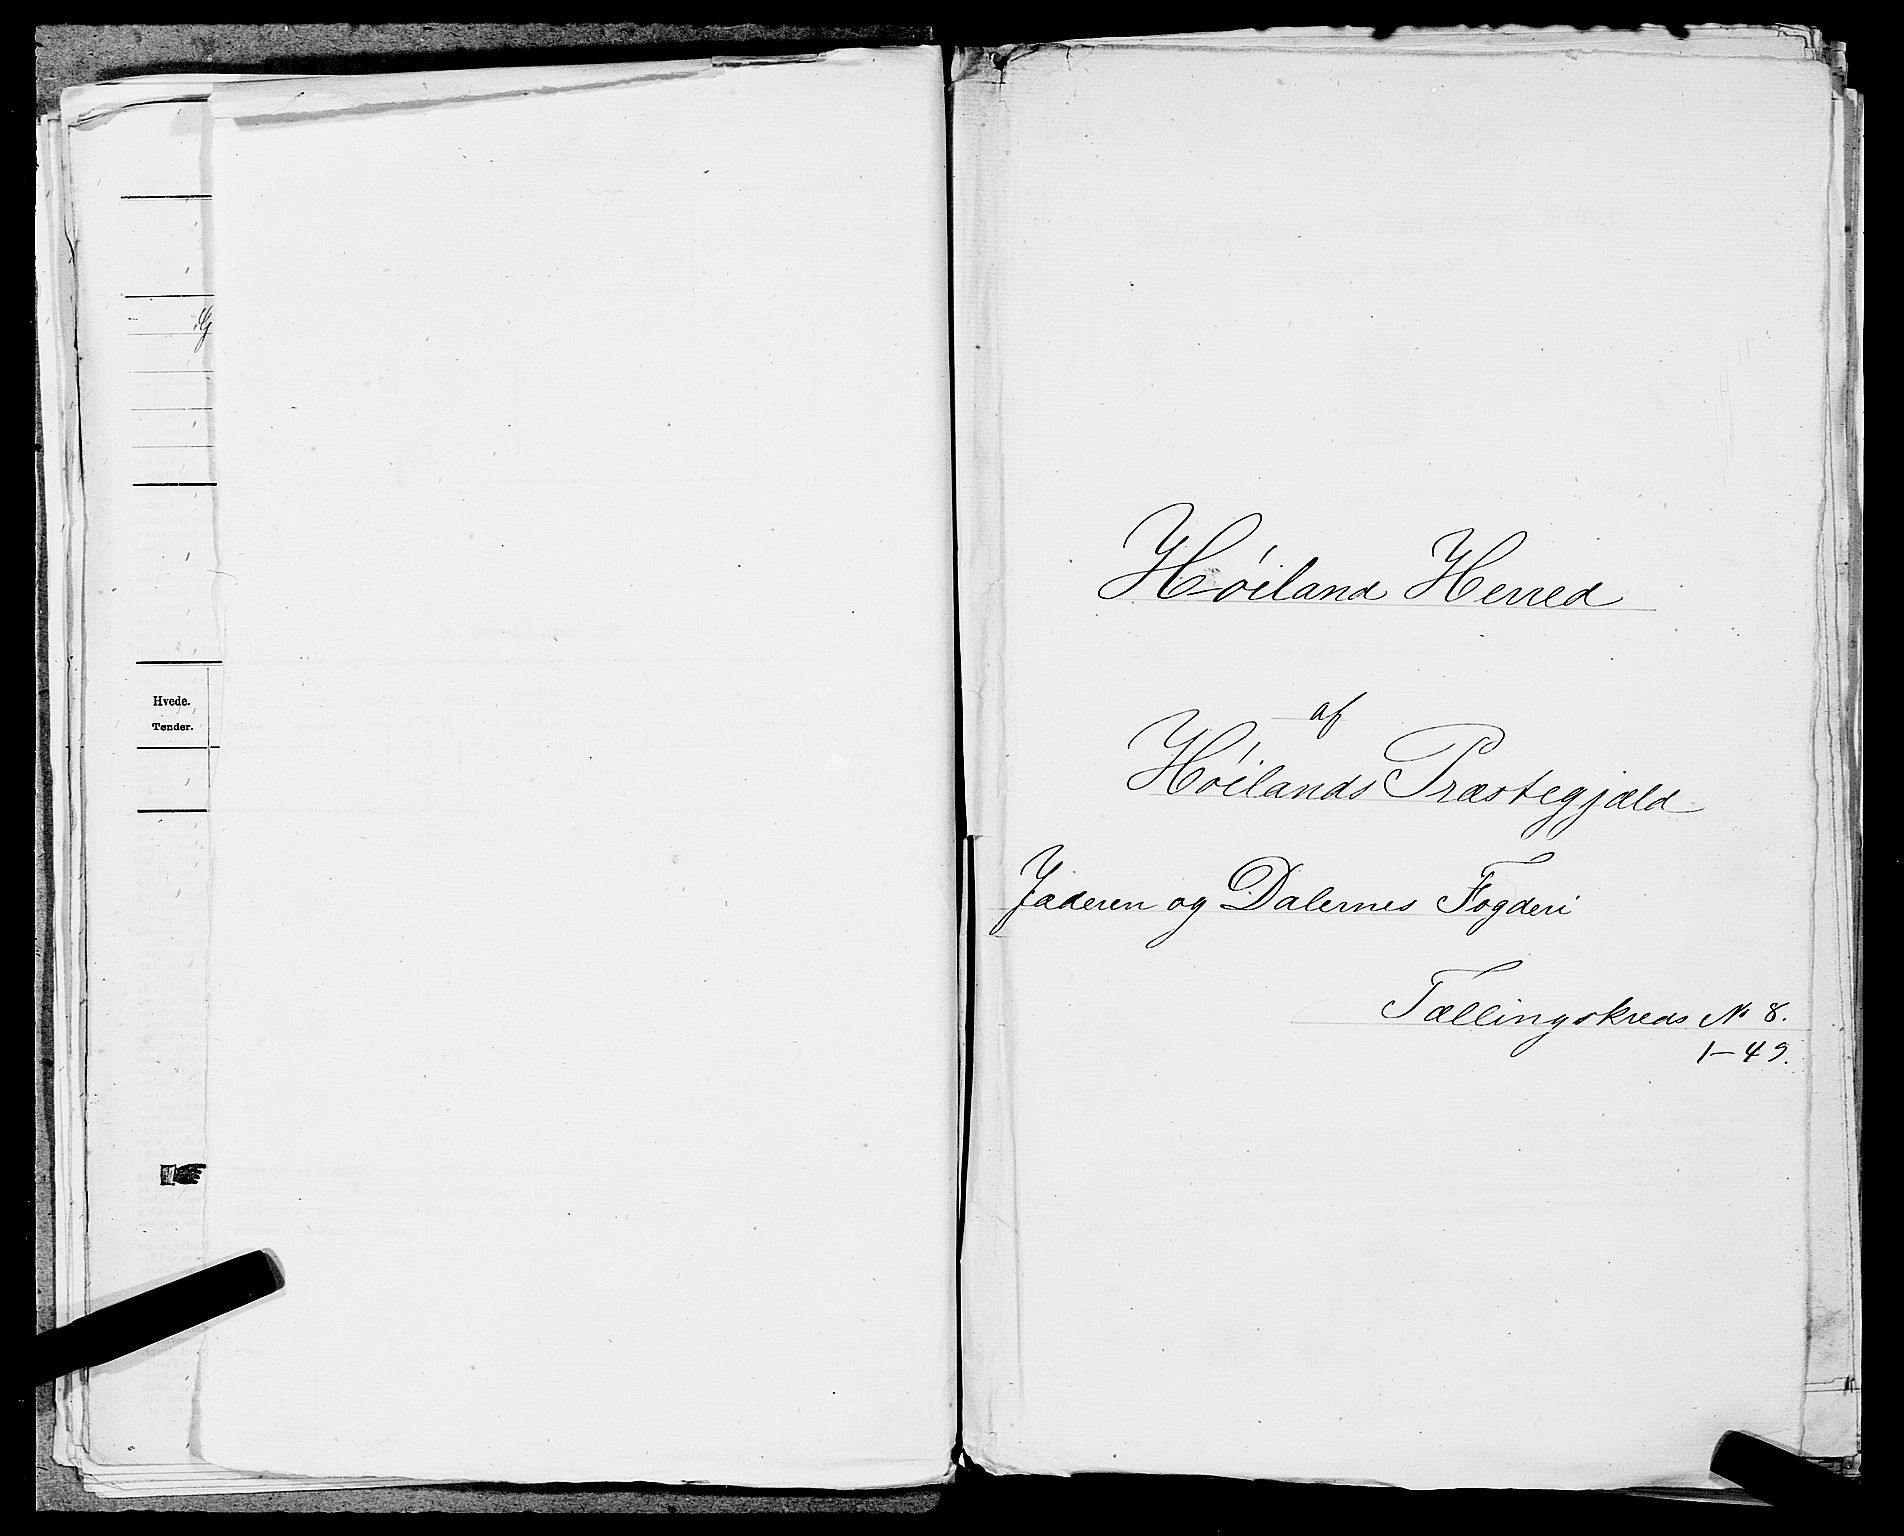 Hvede.
Tønder.
Høiland Herred
af
Høilands Præstegjæld
Jæderen og Dalernes Fogderi
Tællingskreds No 8.
1-49.